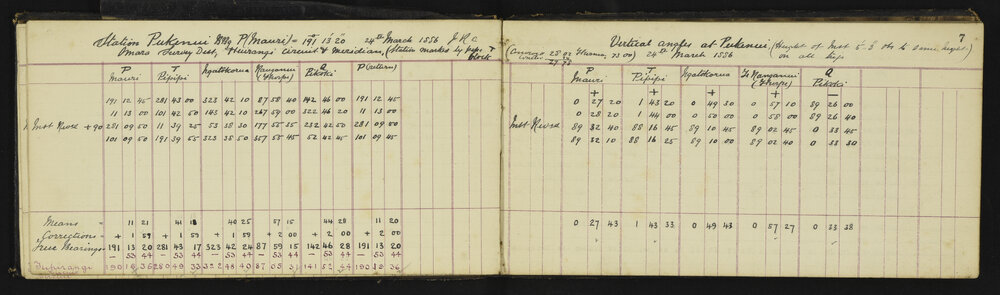 Station Pukenui Brg P (Mauri) = 191 13 20 24th March 1886 J.R.C
Omara Survey Dist, Heirangi Circuit & Meridian, (Station marked by
block
P T P
Mauri Pipipi Ngatokorua Ranganui (Thorps) Pikoki (return)
191 12 45 281 43 00 323 42 10 87 58 40 142 46 00 191 12 45
11 13 00 101 42 50 143 42 10 267 59 00 322 46 20 11 13 00
Inst Revsd +90 281 09 50 11 39 25 53 38 30 177 55 35 232 42 50 281 09 00
101 09 50 191 39 55 323 38 50 357 55 45 52 42 45 101 09 50
Means = 11 21 41 18 40 25 57 15 44 29 11 20
Corrections = + 1 59 + 1 59 + 1 59 + 2 00 + 2 00 + 2 00
True Bearings = 191 13 20 281 43 17 323 42 24 87 59 15 142 46 28 191 13 20
- 53 44 - 53 44 - 53 44 - 53 44 - 53 44 - 53 44
7
Vertical angles at Pukenui (Height of Inst 5.3 obs to same height
24th March 1886 on all trigs
P T
Mauri Pipipi Ngatokorua Ranganui (Thorps) Pikoki
+ + + + -
0 27 20 1 43 20 0 49 30 0 57 10 89 26 00
0 28 20 1 44 00 0 50 00 0 58 00 89 26 40
Inst Revsd 89 32 40 88 16 45 89 10 45 89 02 45 0 33 45
89 32 10 88 16 25 89 10 00 89 02 40 0 33 30
0 27 43 1 43 33 0 49 43 0 57 27 0 33 38